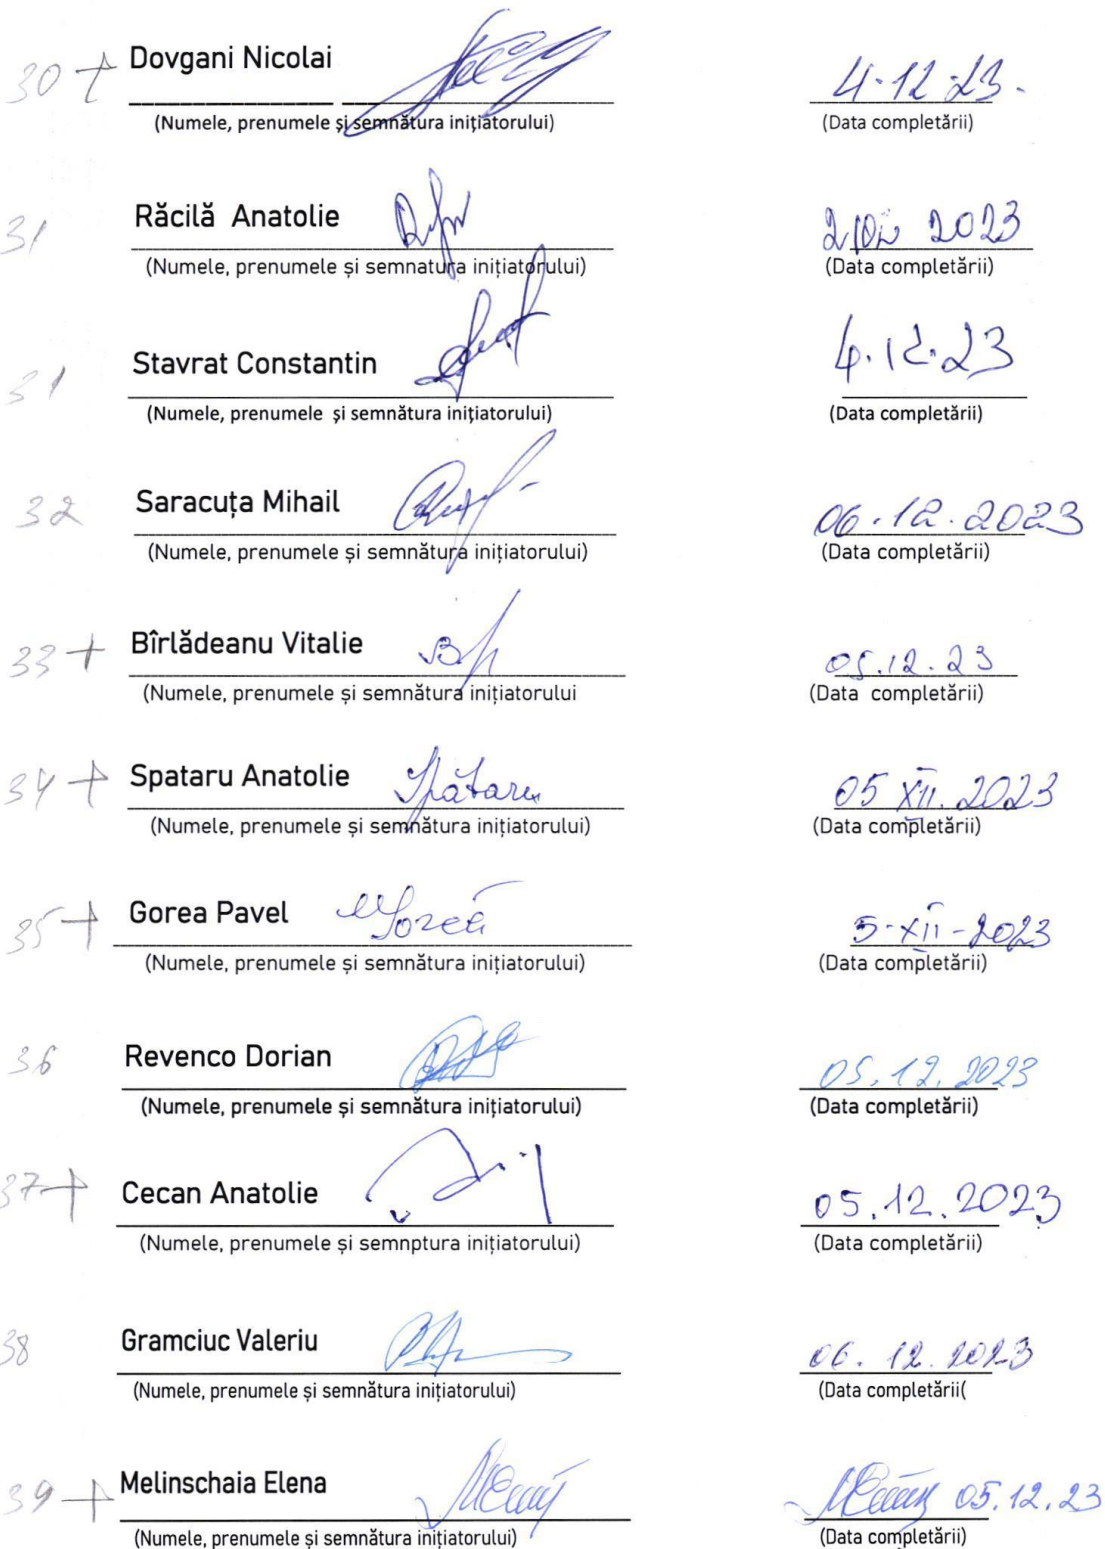 30 + Dovgani Nicolai 4.12.23.
(Numele, prenumele și semnătura inițiatorului) (Data completării)
31 Răcilă Anatolie 2023
(Numele, prenumele și semnatura inițiatorului) (Data completării)
31 Stavrat Constantin 4.12.23
(Numele, prenumele și semnătura inițiatorului) (Data completării)
32 Saracuța Mihail 06.12.2023
(Numele, prenumele și semnătura inițiatorului) (Data completării)
33 + Bîrlădeanu Vitalie 05.12.23
(Numele, prenumele și semnătura inițiatorului (Data completării)
34 + Spataru Anatolie Spătaru 05 XII. 2023
(Numele, prenumele și semnătura inițiatorului) (Data completării)
35 + Gorea Pavel 5-XII-2023
(Numele, prenumele și semnătura inițiatorului) (Data completării)
36 Revenco Dorian 05.12.2023
(Numele, prenumele și semnătura inițiatorului) (Data completării)
37 + Cecan Anatolie 05.12.2023
(Numele, prenumele și semnptura inițiatorului) (Data completării)
38 Gramciuc Valeriu 06.12.2023
(Numele, prenumele și semnătura inițiatorului) (Data completării(
39 + Melinschaia Elena 05.12.23
(Numele, prenumele și semnătura inițiatorului) (Data completării)